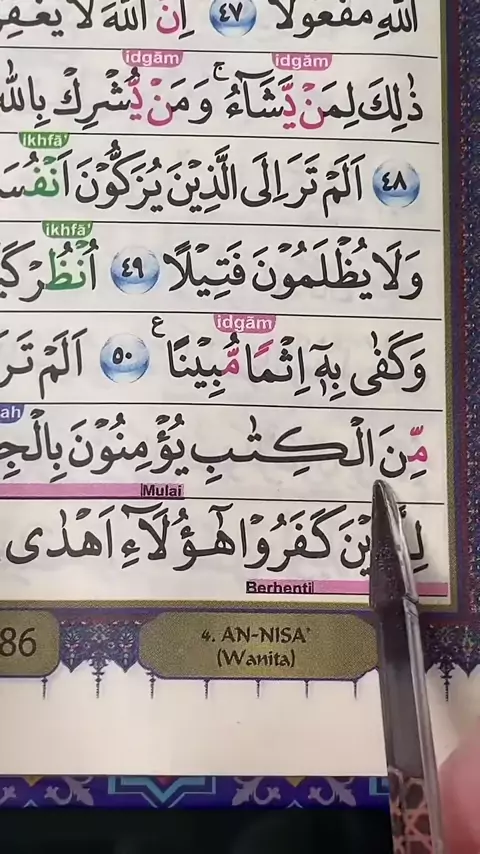 اللّٰهِ مَفْعُوْلًا ٤٧ اِنَّ اللّٰهَ لَا يَغْفِرُ
idgām idgām
ذٰلِكَ لِمَنْ يَّشَاۤءُ ۚ وَمَنْ يُّشْرِكْ بِاللّٰهِ
ikhfā'
٤٨ اَلَمْ تَرَ اِلَى الَّذِيْنَ يُزَكُّوْنَ
ikhfā'
وَلَا يُظْلَمُوْنَ فَتِيْلًا ٤٩ اُنْظُرْ
idgām
وَكَفٰى بِهٖٓ اِثْمًا مُّبِيْنًا ࣖ ٥٠ اَلَمْ تَرَ
مِّنَ الْكِتٰبِ يُؤْمِنُوْنَ
Mulai
كَفَرُوْا هٰٓؤُلَاۤءِ اَهْدٰى
Berhenti
86
4. AN-NISA'
(Wanita)